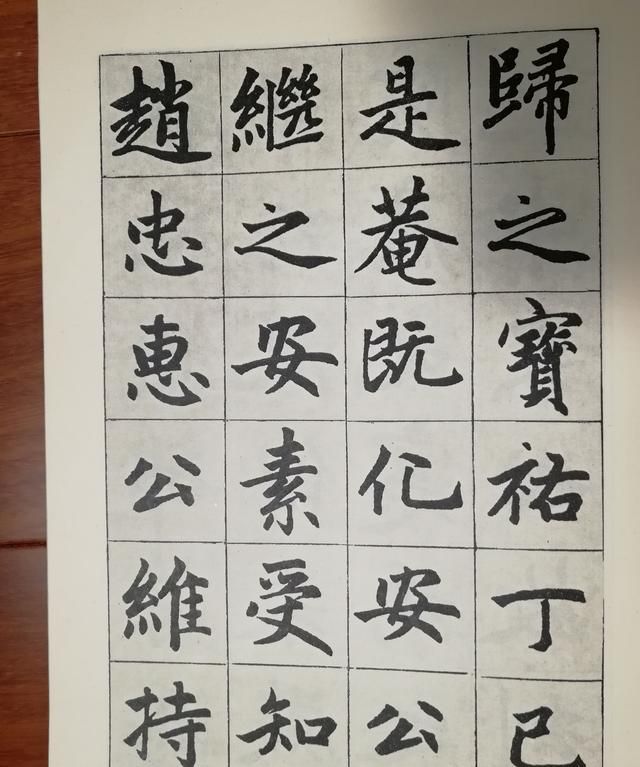 歸之寶祐丁巳
是菴既化安公
繼之安素受知
趙忠惠公維持